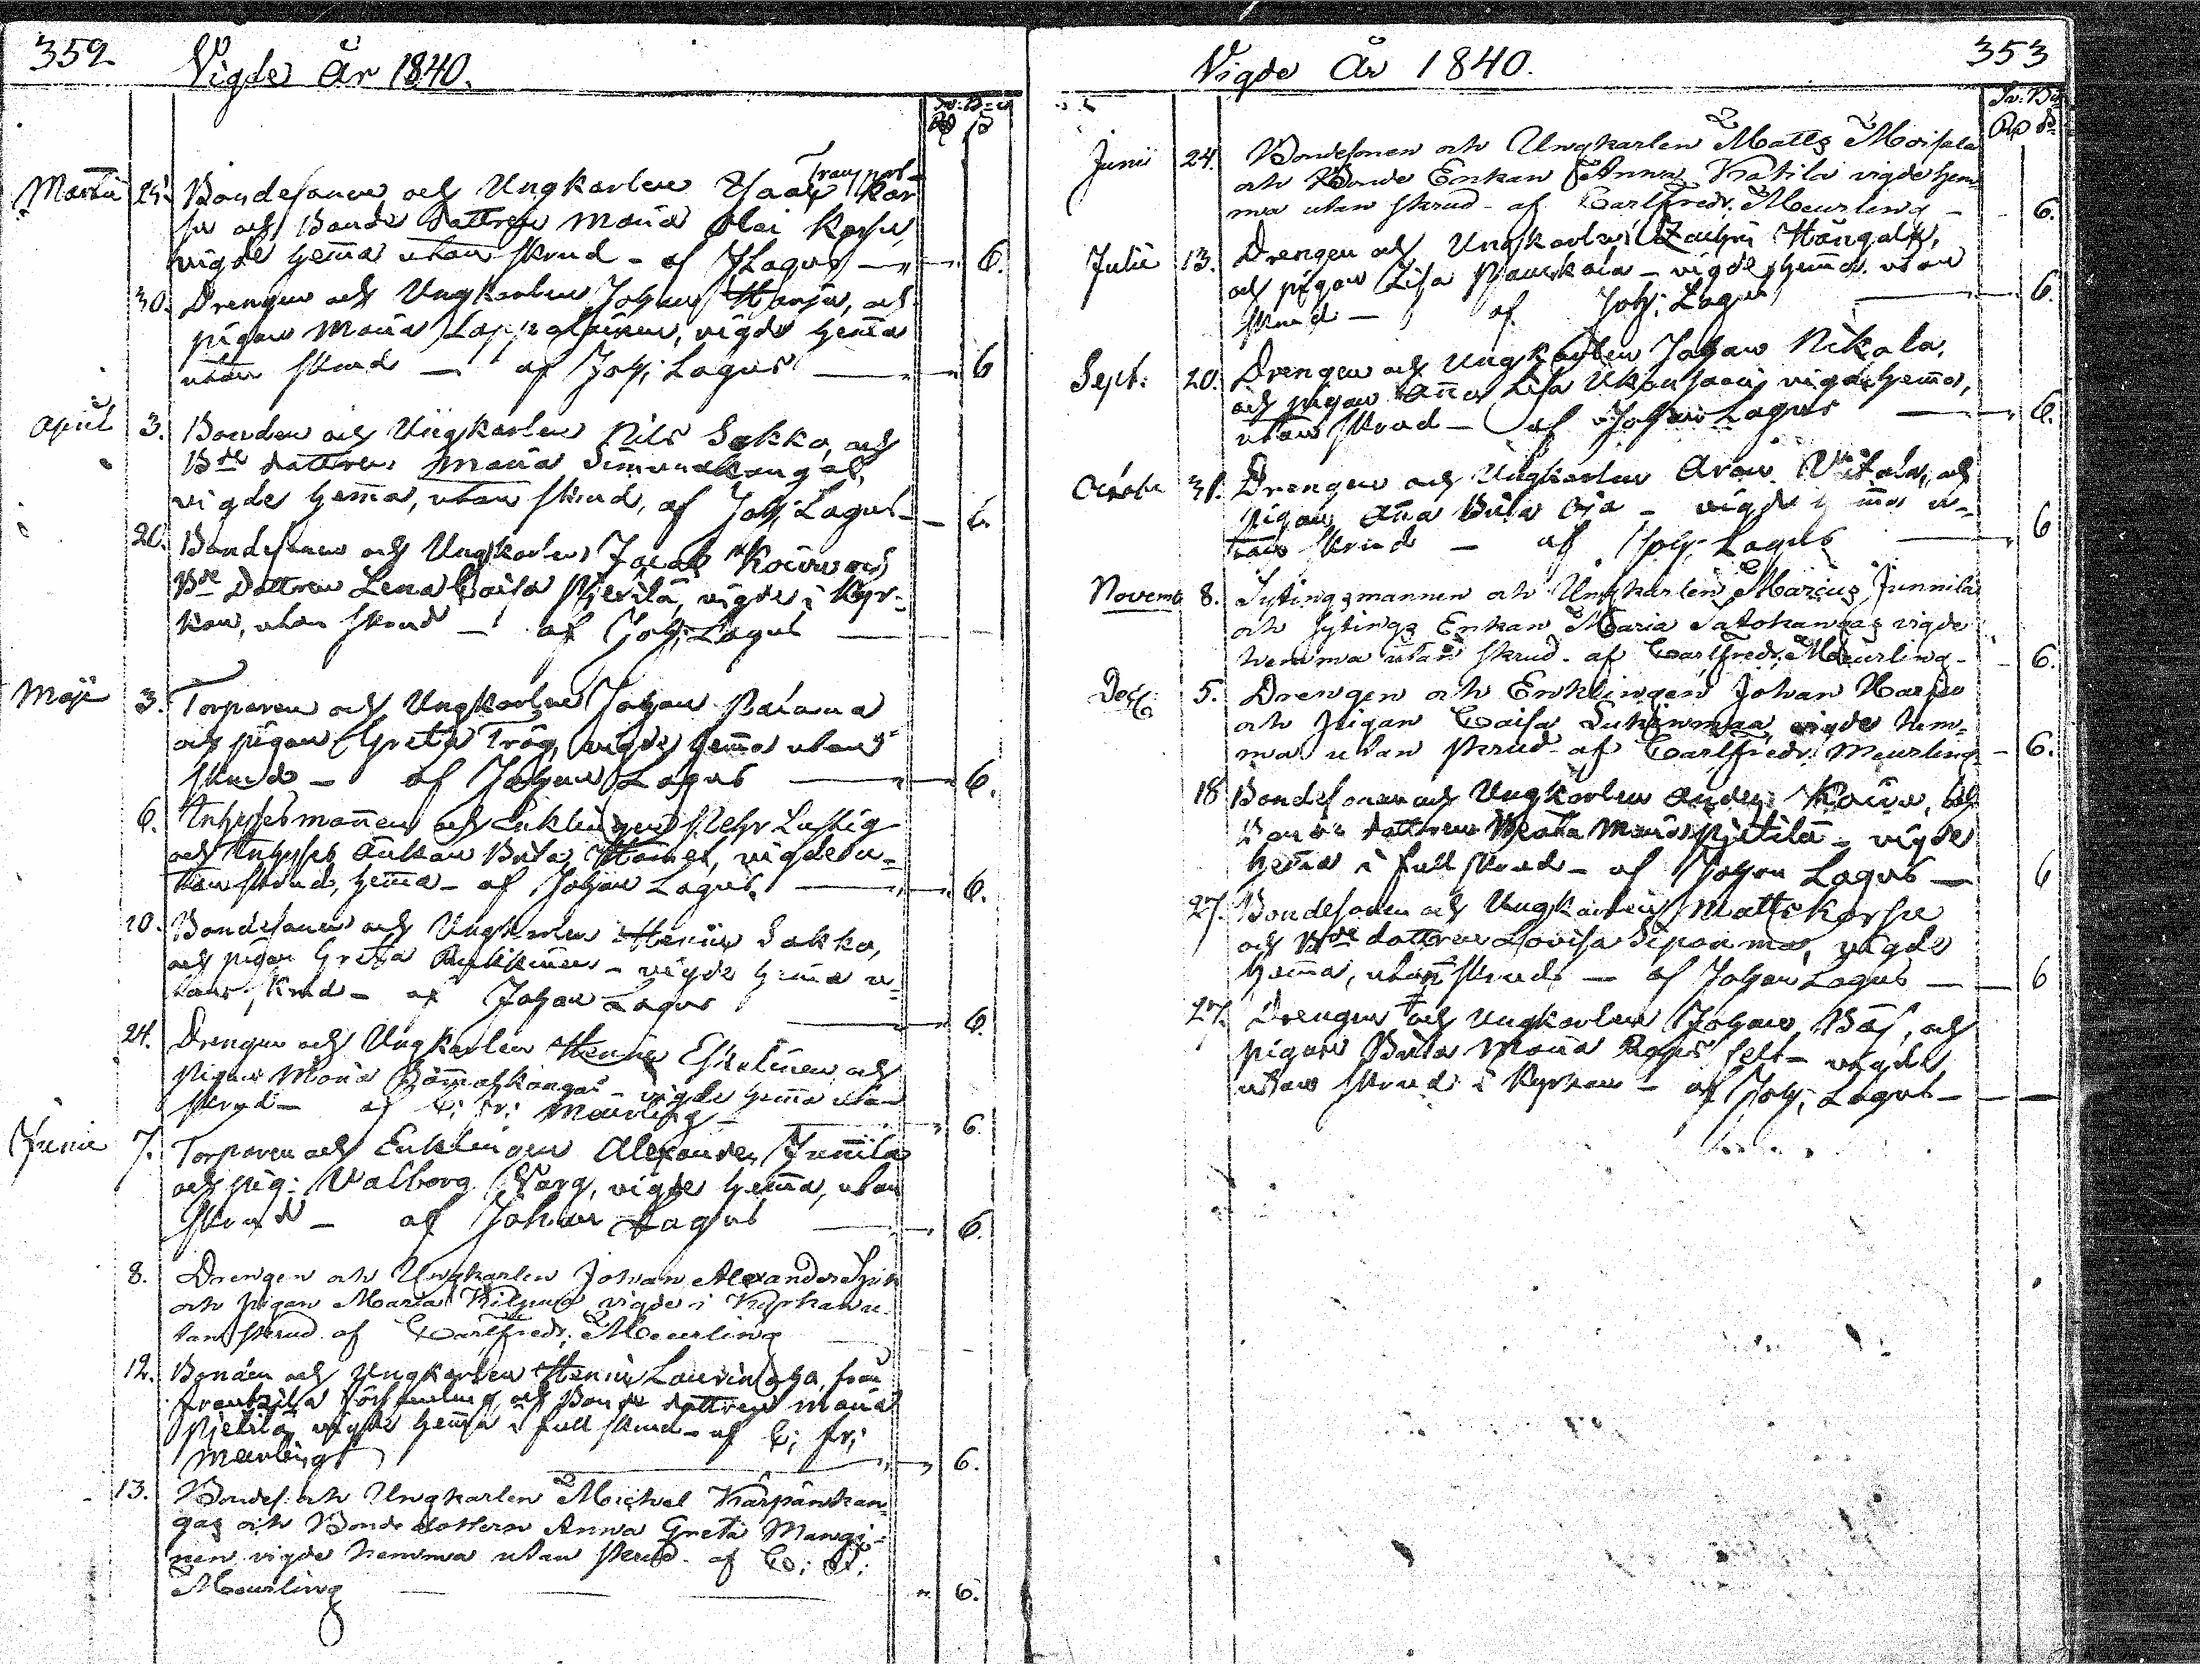 352 Vigde År 1840.
Transport
Martii 25. Bondesonen och Ungkarlen Isaac Kar
hu och Bonde dottren Maria Olai Karhu,
vigde hem̄a utan skrud - af J Lagus - 6.
30. Drengen och Ungkarlen Johan Harju, och
pigan Maria Lappalainen, vigde hem̄a
utan skrud - af Joh: Lagus - 6
April 3. Bonden och Ungkarlen Nils Sakko, och
Bde dottren Maria
vigde hem̄a, utan skrud, af Joh: Lagus - 6.
20. Bondesonen och Ungkarlen Jacob Koivu och
Bde Dottren Lena Caisa Pietilä, vigde i Kyr-
kan, utan skrud - af Joh: Lagus
Maji 3. Torparen och Ungkarlen Johan
och pigan Greta Träg, vigde hem̄a utan
skrud - af Johan Lagus - 6.
6. Inhysesman̄en och Enklingen Pehr Lustig
och Inhyses Enkan Brita vigde u-
tan skrud, hem̄a - af Johan Lagus. - 6.
10. Bondesonen och Ungkarlen Henric Sakko,
och pigan Greta - vigde hem̄a u-
tan skrud - af Johan Lagus - 6.
24. Drengen och Ungkarlen Henric Eskelinen och
pigan Maria - vigde hem̄a utan
skrud - af C: Fr: Meurling - 6.
Junii 7. Torparen och Enklingen Alexander Jun̄ila
och pig: Valborg Varg, vigde hem̄a, utan
skrud - af Johan Lagus - 6.
8. Drengen och Ungkarlen Johan Alexander
och pigan Maria vigde i Kyrkan u-
tan skrud. af Carl Fredr: Meurling
12. Bonden och Ungkarlen Henric Laurinoja, från
Frantzila Församling, och Bonde dottren Maria
Pietilä, vigde hem̄a i full skrud - af C: Fr:
Meurling - 6.
13. Bondes: och Ungkarlen Michel Kärpänkan-
gas och Bonde dottern Anna Greta Mangi-
nen vigde hemma utan skrud - af C: F:
Meurling - 6.
Vigde År 1840. 353
Junii 24. Bondesonen och Ungkarlen Matts Moisala
och Bonde Enkan Anna Katila vigde hem-
ma utan skrud - af Carl Fredr: Meurling - 6.
Julii 13. Drengen och Ungkarlen Zachris
och pigan Lisa vigde hem̄a utan
skrud - af Joh: Lagus - 6.
Sept: 20. Drengen och Ungkarlen Johan Nikola,
och pigan An̄a Lisa vigde hem̄a,
utan skrud - af Johan Lagus - 6.
October 31. Drengen och Ungkarlen Aron och
pigan An̄a Brita Oja - vigde hem̄a u-
tan skrud - af Joh: Lagus - 6
Novemb 8. Sytingsmannen och Ungkarlen Marcus Junnila
och Sytings Enkan Maria Satokangas vigde
hemma utan skrud - af Carl Fredr: Meurling - 6.
Dec: 5. Drengen och Enklingen Johan Harju
och Pigan Caisa Lukinmaa, vigde hem-
ma utan skrud - af Carl Fredr: Meurling - 6.
18 Bondesonen och Ungkarlen Anders Koivu, och
Bonde dottren Beata Maria Pietilä - vigde
hem̄a i full skrud - af Johan Lagus - 6
27. Bondesonen och Ungkarlen Matts Karhu
och Bde dottren Lovisa Sipoinmaa, vigde
hem̄a, utan skrud - af Johan Lagus - 6
27. Drengen och Ungkarlen Johan och
pigan Brita Maria felt - vigde
utan skrud i Kyrkan - af Joh: Lagus -